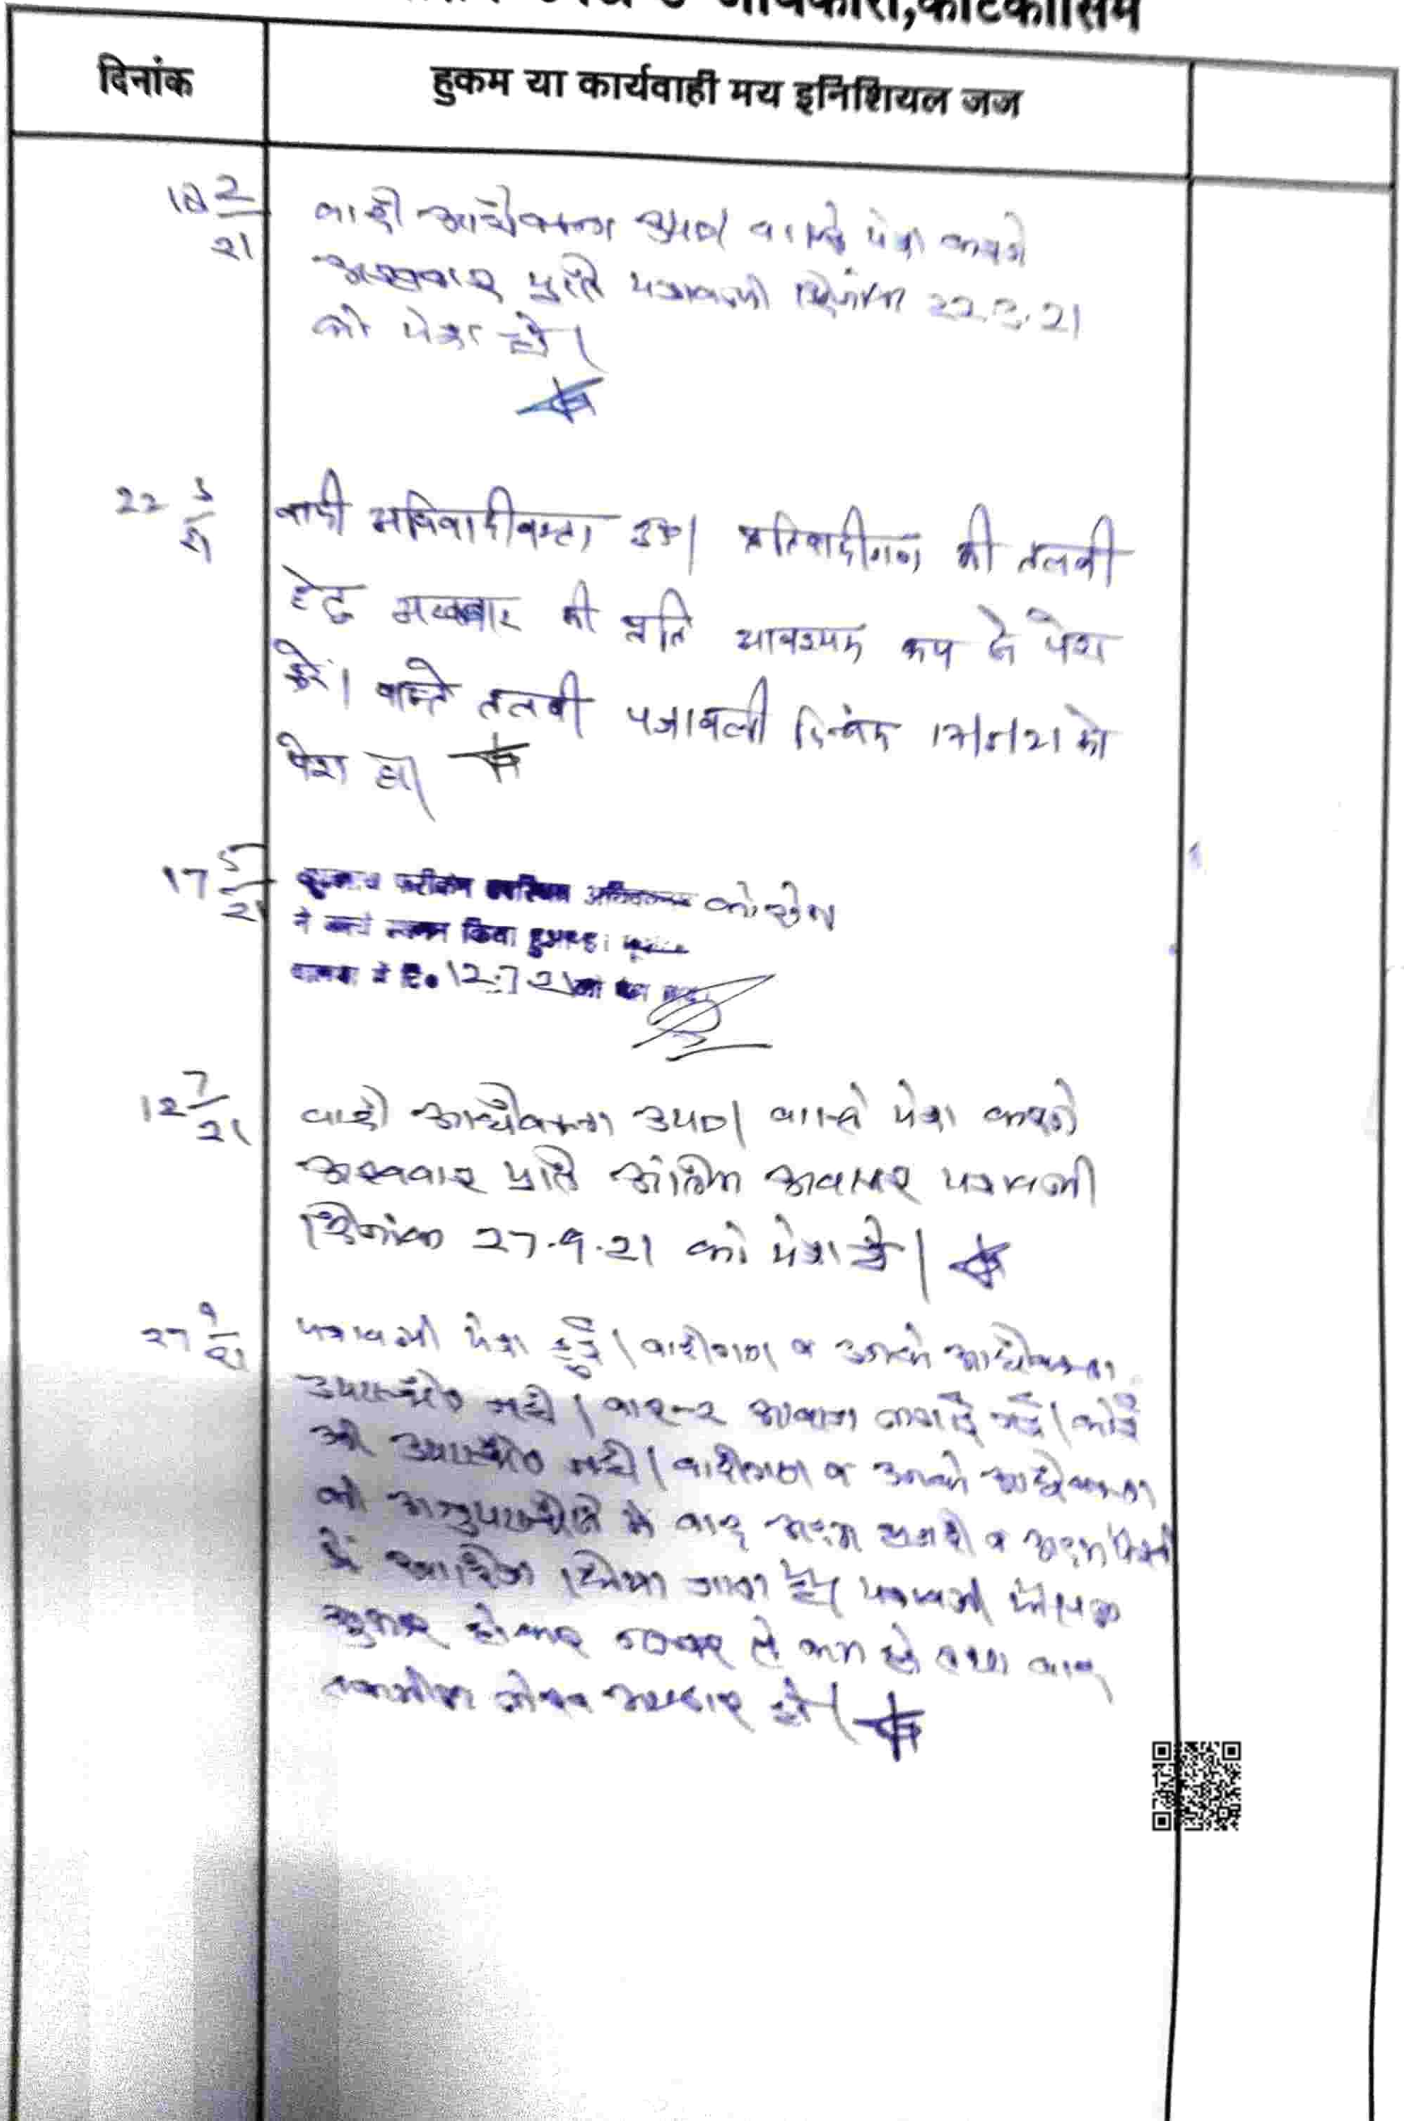 अधिकारी,कोटकासिम
दिनांक हुकम या कार्यवाही मय इनिशियल जज
18 2/21 वादी अधिवक्ता उप0। वास्ते पेश करने
अखबार प्रति पत्रावली दिनांक 22.3.21
को पेश हो।
22 3/21 वादी अधिवक्ता उप। प्रतिवादीगण की तलबी
हेतु अखबार की प्रति आवश्यक रूप से पेश
करें। वास्ते तलबी पत्रावली दिनांक 17/5/21 को
पेश हो।
17 5/21 कोरोना
ने किया हुआ है।
दि० 12.7.21 को पेश
12 7/21 वादी अधिवक्ता उप0। वास्ते पेश करने
अखबार प्रति अंतिम अवसर पत्रावली
दिनांक 27.9.21 को पेश हो।
27 9/21 पत्रावली पेश हुई। वादीगण व उनके अधिवक्ता
उपस्थित नहीं। बार-2 आवाज लगाई गई। कोई
भी उपस्थित नहीं। वादीगण व उनके अधिवक्ता
की अनुपस्थिति में वाद अदम हाजरी व अदम पैरवी
में खारिज किया जाता है। पत्रावली फैसल
शुमार होकर नम्बर से कम हो तथा बाद
तकमील दाखिल दफ्तर हो।